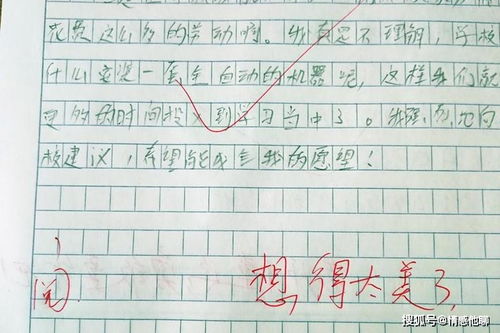 花费这么多的劳动啊。我真是不理解，学校
什么安装一套全自动的机器呢，这样我们就
更多的时间投入到学习当中了。我强烈地向
校建议，希望能成全我的愿望！
阅 想得太美了
搜狐号@情感他聊